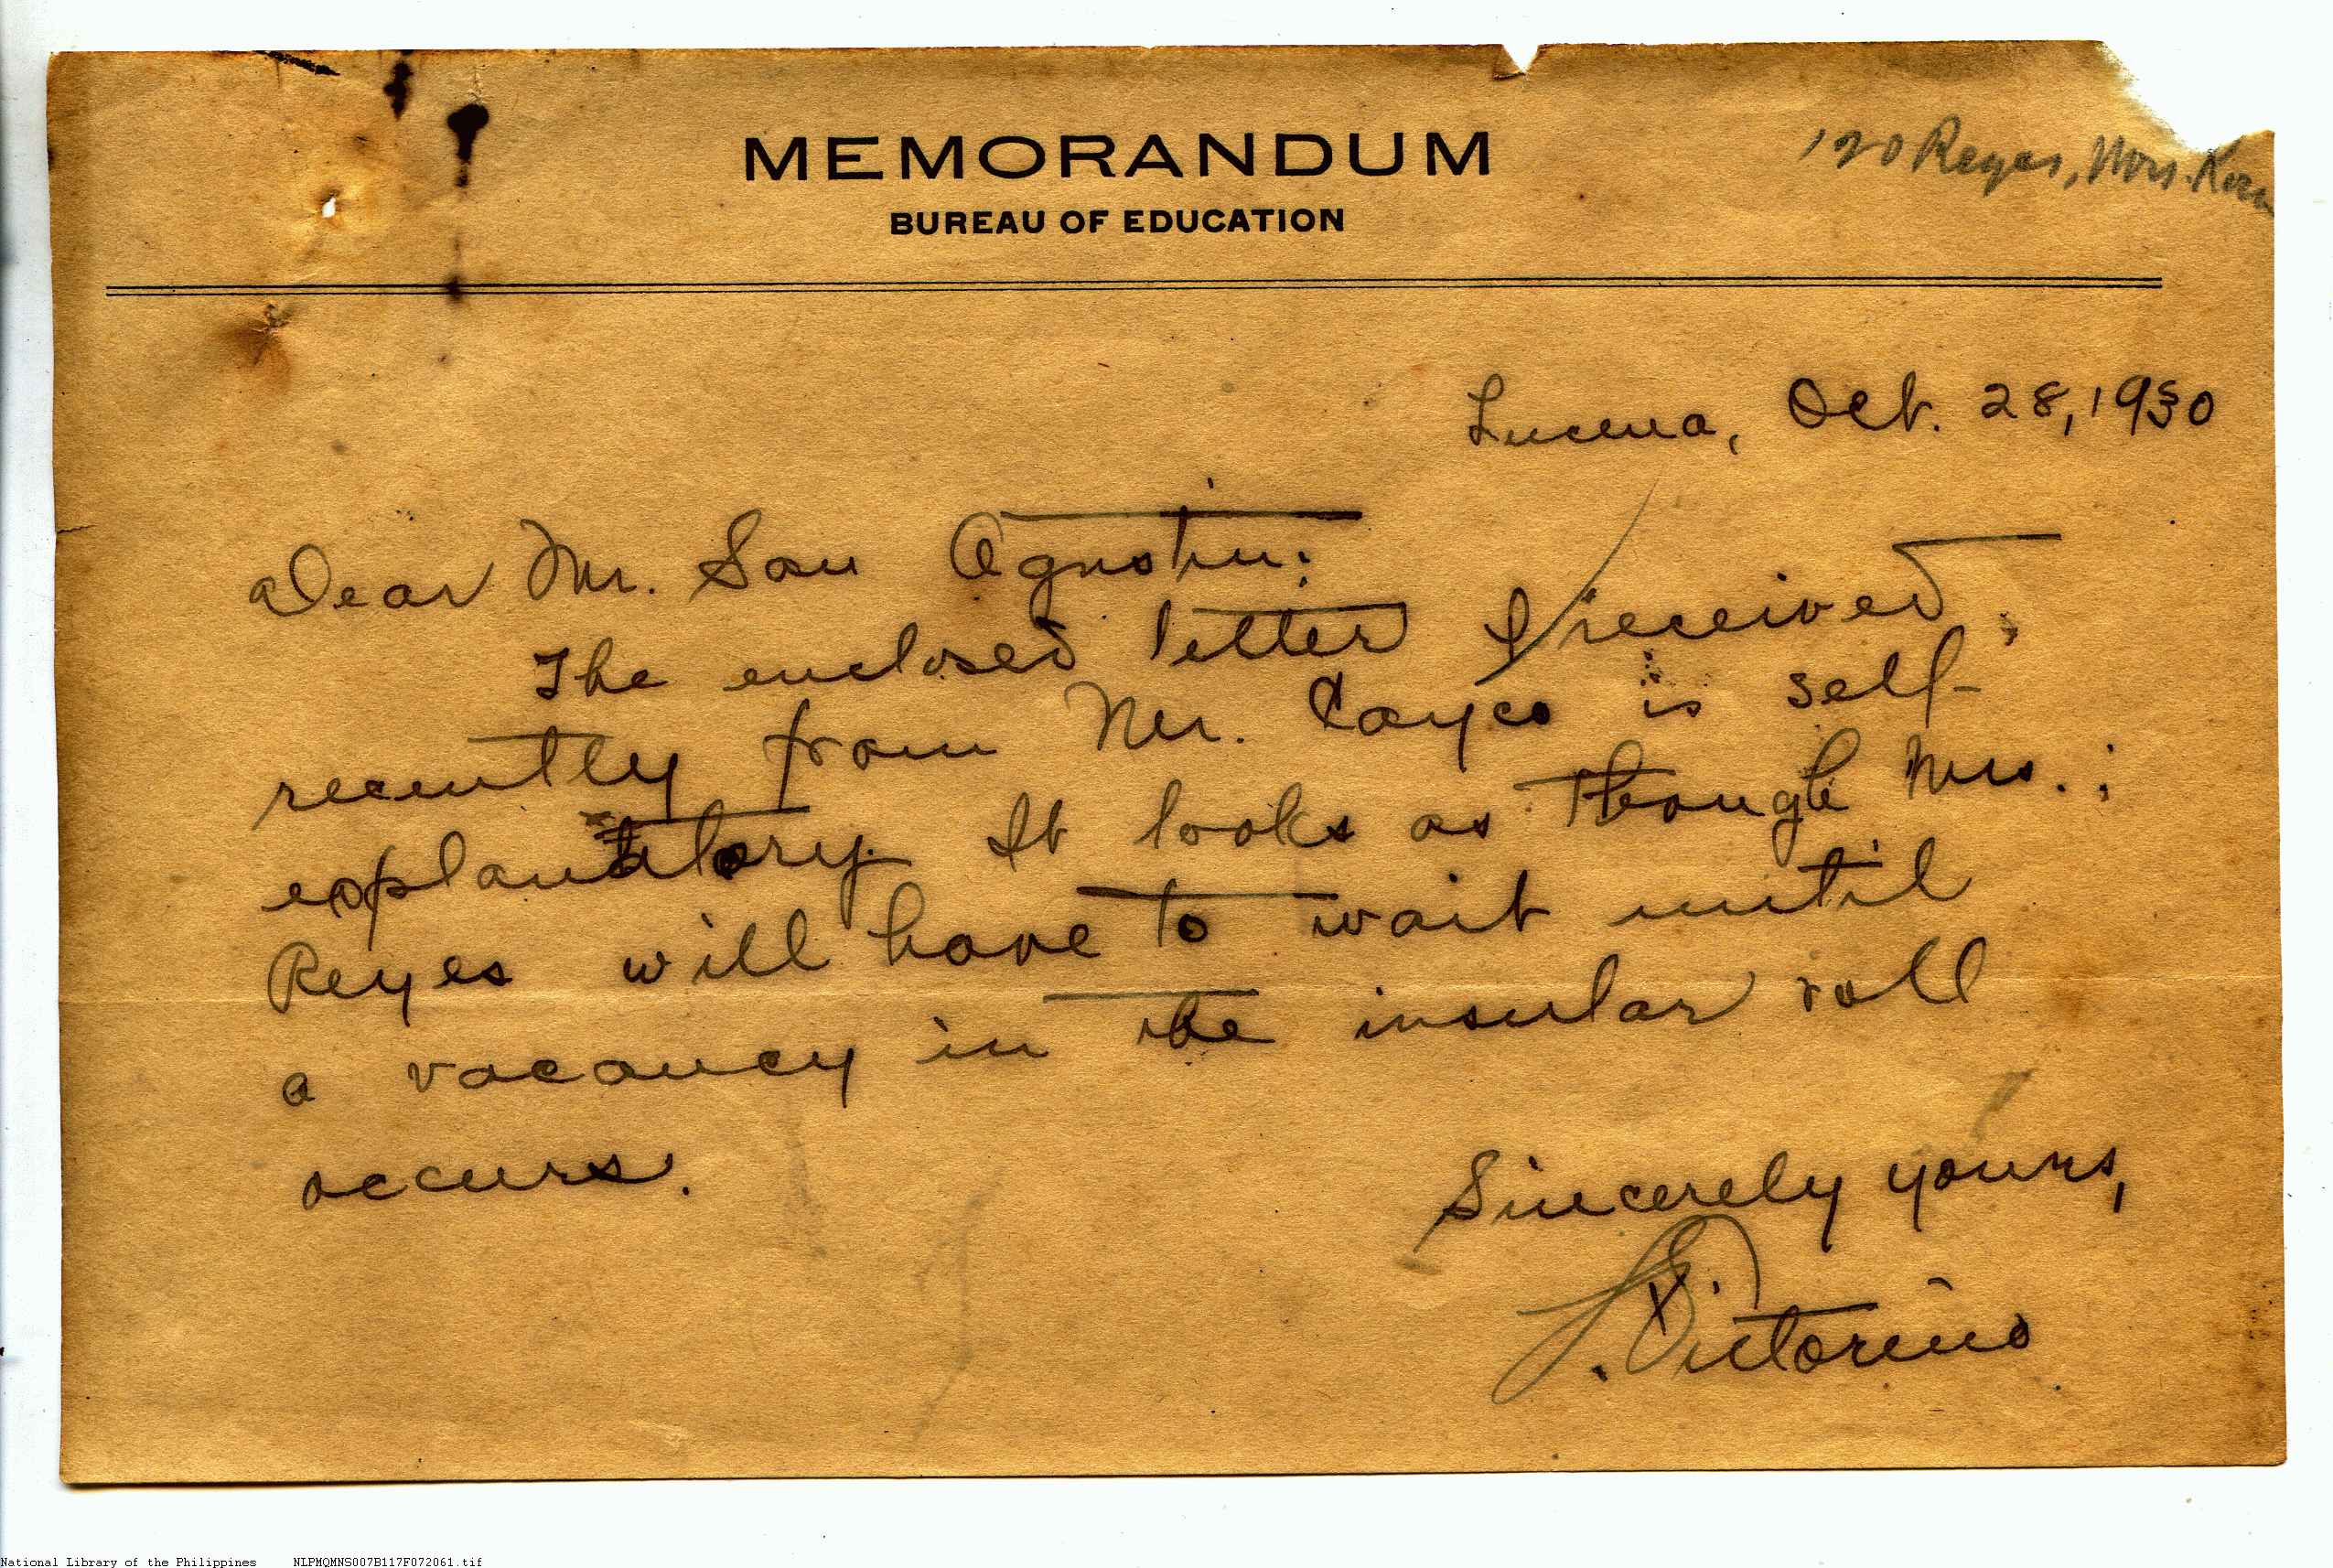 MEMORANDUM
BUREAU OF EDUCATION
120 Reyes, Mrs.
Lucena, Oct. 28, 1930
Dear Mr. San Agustin:
The enclosed letter I received
recently from Mr. Cayco is self-
explanatory. It looks as though Mrs.
Reyes will have to wait until
a vacancy in the insular roll
occurs.
Sincerely yours,
Victorino
National Library of the Philippines NLPMQMNS007B117F072061.tif